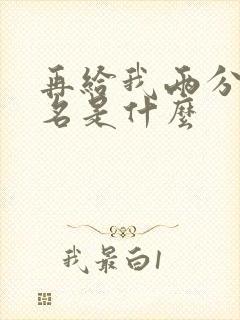 再给我两分
名是什麼
我最白1